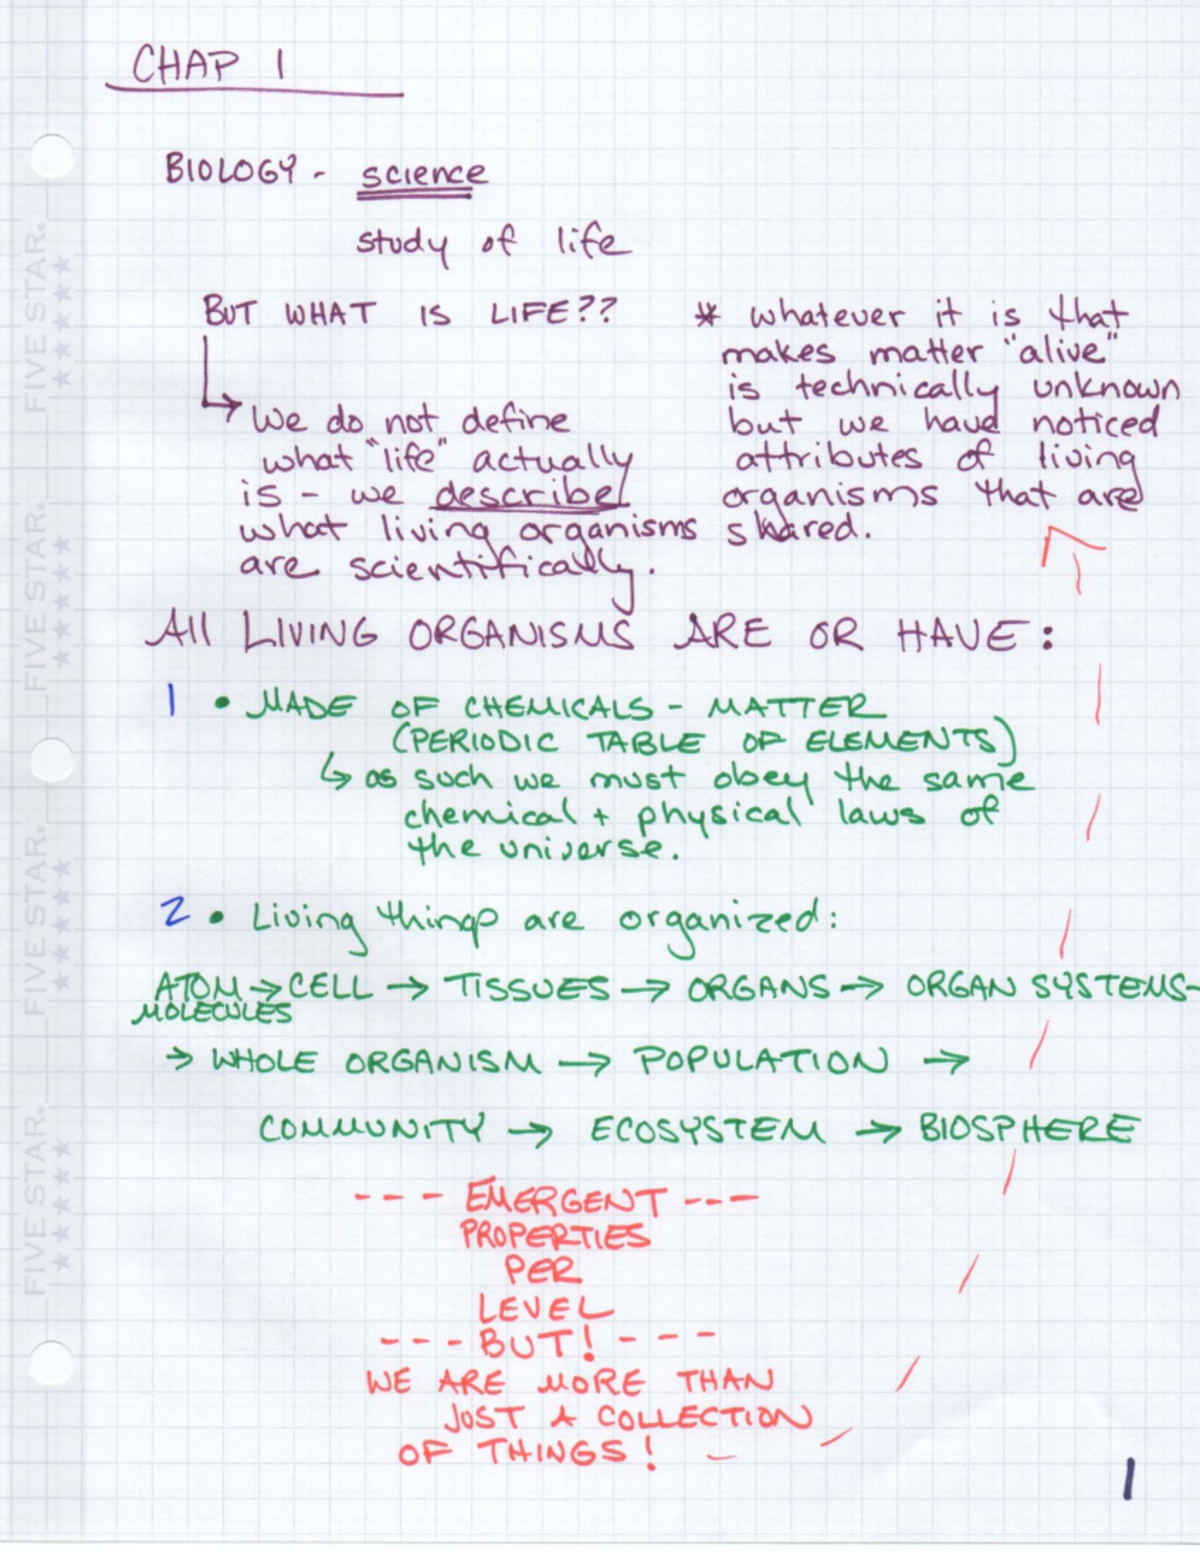 CHAP 1
BIOLOGY - science
study of life
BUT WHAT IS LIFE??
We do not define
what "life" actually
is - we describe
what living organisms
are scientifically.
* whatever it is that
makes matter "alive"
is technically unknown
but we have noticed
attributes of living
organisms that are
shared.
All LIVING ORGANISMS ARE OR HAVE:
1 • MADE OF CHEMICALS - MATTER
(PERIODIC TABLE OF ELEMENTS)
↳ as such we must obey the same
chemical + physical laws of
the universe.
2 • Living things are organized:
ATOM → CELL → TISSUES → ORGANS → ORGAN SYSTEMS-
MOLECULES
→ WHOLE ORGANISM → POPULATION →
COMMUNITY → ECOSYSTEM → BIOSPHERE
--- EMERGENT ---
PROPERTIES
PER
LEVEL
--- BUT! ---
WE ARE MORE THAN
JUST A COLLECTION
OF THINGS!
1
FIVE STAR.
FIVE STAR.
FIVE STAR.
FIVE STAR.